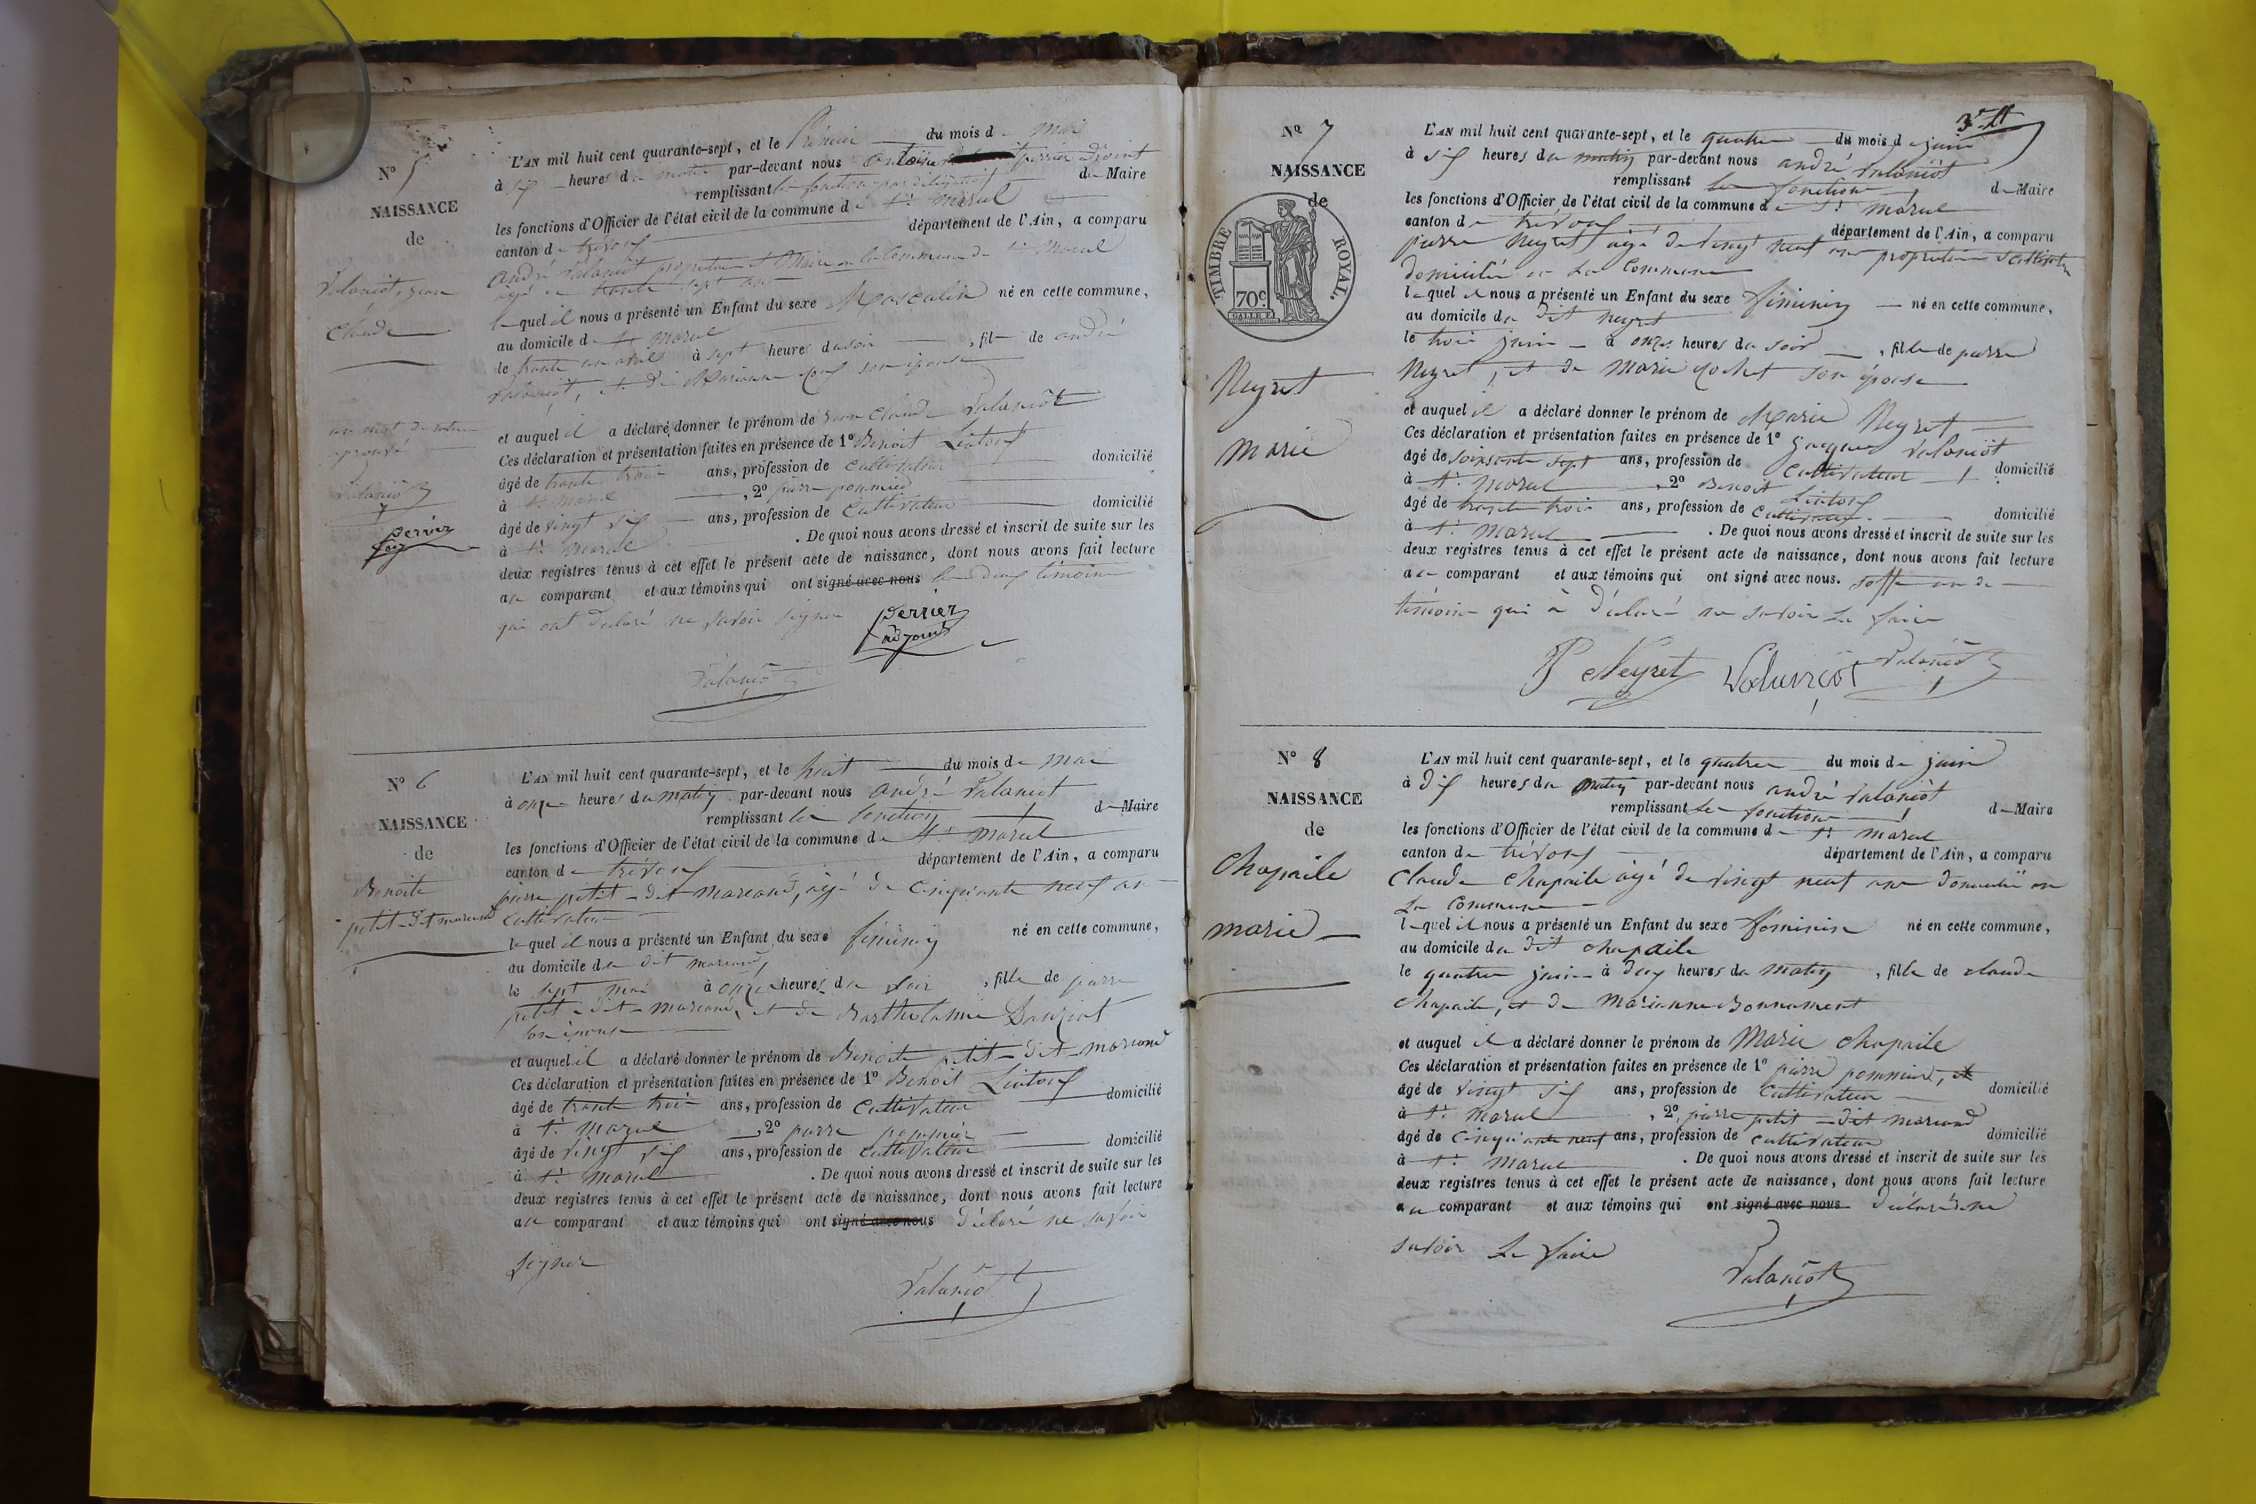 N° 5
NAISSANCE
de
Valanciot, jean
Claude
un mot de nature
aprouvé
Valanciot
perrier
L'AN mil huit cent quarante-sept, et le Prémier du mois de Mai
à six heures du matin par-devant nous antoine perrier adjoint
remplissant les fonctions par délégation de Maire
les fonctions d'Officier de l'état civil de la commune de St. Marcel
canton de trévoux département de l'Ain, a comparu
andré Valanciot propriétaire et Maire en la commune de St. Marcel
agé de trente sept ans
lequel il nous a présenté un Enfant du sexe Masculin né en cette commune,
au domicile de St. Marcel
le trente un avril à sept heures du soir, fils de andré
Valanciot, et de Marianne son épouse
et auquel il a déclaré donner le prénom de jean Claude Valanciot
Ces déclaration et présentation faites en présence de 1° Benoit
âgé de trente trois ans, profession de Cultivateur domicilié
à St. Marcel, 2° pierre pommier
âgé de vingt six ans, profession de Cultivateur domicilié
à St. Marcel. De quoi nous avons dressé et inscrit de suite sur les
deux registres tenus à cet effet le présent acte de naissance, dont nous avons fait lecture
au comparant et aux témoins qui ont signé avec nous les deux témoins
qui ont déclaré ne savoir signer
perrier
adjoint
Valanciot
N° 6
NAISSANCE
de
Benoite
petit-dit marcand
L'AN mil huit cent quarante-sept, et le huit du mois de mai
à onze heures du matin par-devant nous andré Valanciot
remplissant les fonctions de Maire
les fonctions d'Officier de l'état civil de la commune de St. Marcel
canton de trévoux département de l'Ain, a comparu
pierre petit-dit marcand, agé de cinquante neuf ans
Cultivateur
lequel il nous a présenté un Enfant du sexe féminin né en cette commune,
au domicile du dit marcand
le sept mai à onze heures du soir, fille de pierre
petit-dit-marcand, et de Bartholomie
son épouse
et auquel il a déclaré donner le prénom de Benoite petit-dit-marcand
Ces déclaration et présentation faites en présence de 1° Benoit
âgé de trente trois ans, profession de Cultivateur domicilié
à St. Marcel, 2° pierre pommier
âgé de vingt six ans, profession de Cultivateur domicilié
à St. Marcel. De quoi nous avons dressé et inscrit de suite sur les
deux registres tenus à cet effet le présent acte de naissance, dont nous avons fait lecture
au comparant et aux témoins qui ont signé avec nous déclaré ne savoir
signer
Valanciot
N° 7
NAISSANCE
de
TIMBRE ROYAL.
70c.
Neyret
marie
L'AN mil huit cent quarante-sept, et le quatre du mois de juin
à six heures du matin par-devant nous andré Valanciot
remplissant les fonctions de Maire
les fonctions d'Officier de l'état civil de la commune de St. marcel
canton de trévoux département de l'Ain, a comparu
pierre Neyret agé de vingt neuf ans propriétaire Cultivateur
domicilié en la Commune
lequel il nous a présenté un Enfant du sexe féminin né en cette commune,
au domicile du dit Neyret
le trois juin à onze heures du soir, fille de pierre
Neyret, et de marie son épouse
et auquel il a déclaré donner le prénom de Marie Neyret
Ces déclaration et présentation faites en présence de 1° Jacques Valanciot
âgé de soixante sept ans, profession de Cultivateur domicilié
à St. Marcel, 2° Benoit
âgé de trente trois ans, profession de Cultivateur domicilié
à St. Marcel. De quoi nous avons dressé et inscrit de suite sur les
deux registres tenus à cet effet le présent acte de naissance, dont nous avons fait lecture
au comparant et aux témoins qui ont signé avec nous. un de
témoin qui à déclaré ne savoir le faire
P Neyret Valanciot Valanciot
N° 8
NAISSANCE
de
chapaile
marie
L'AN mil huit cent quarante-sept, et le quatre du mois de juin
à dix heures du matin par-devant nous andré Valanciot
remplissant les fonctions de Maire
les fonctions d'Officier de l'état civil de la commune de St. Marcel
canton de trévoux département de l'Ain, a comparu
claude chapaile agé de vingt neuf ans domicilié en
la commune
lequel il nous a présenté un Enfant du sexe féminin né en cette commune,
au domicile du dit chapaile
le quatre juin à deux heures du matin, fille de claude
chapaile, et de Marianne Bonnament
et auquel il a déclaré donner le prénom de Marie chapaile
Ces déclaration et présentation faites en présence de 1° pierre pommier, et
âgé de vingt six ans, profession de Cultivateur domicilié
à St. Marcel, 2° pierre petit-dit marcand
âgé de Cinquante neuf ans, profession de cultivateur domicilié
à St. Marcel. De quoi nous avons dressé et inscrit de suite sur les
deux registres tenus à cet effet le présent acte de naissance, dont nous avons fait lecture
au comparant et aux témoins qui ont signé avec nous déclaré ne
savoir le faire
Valanciot